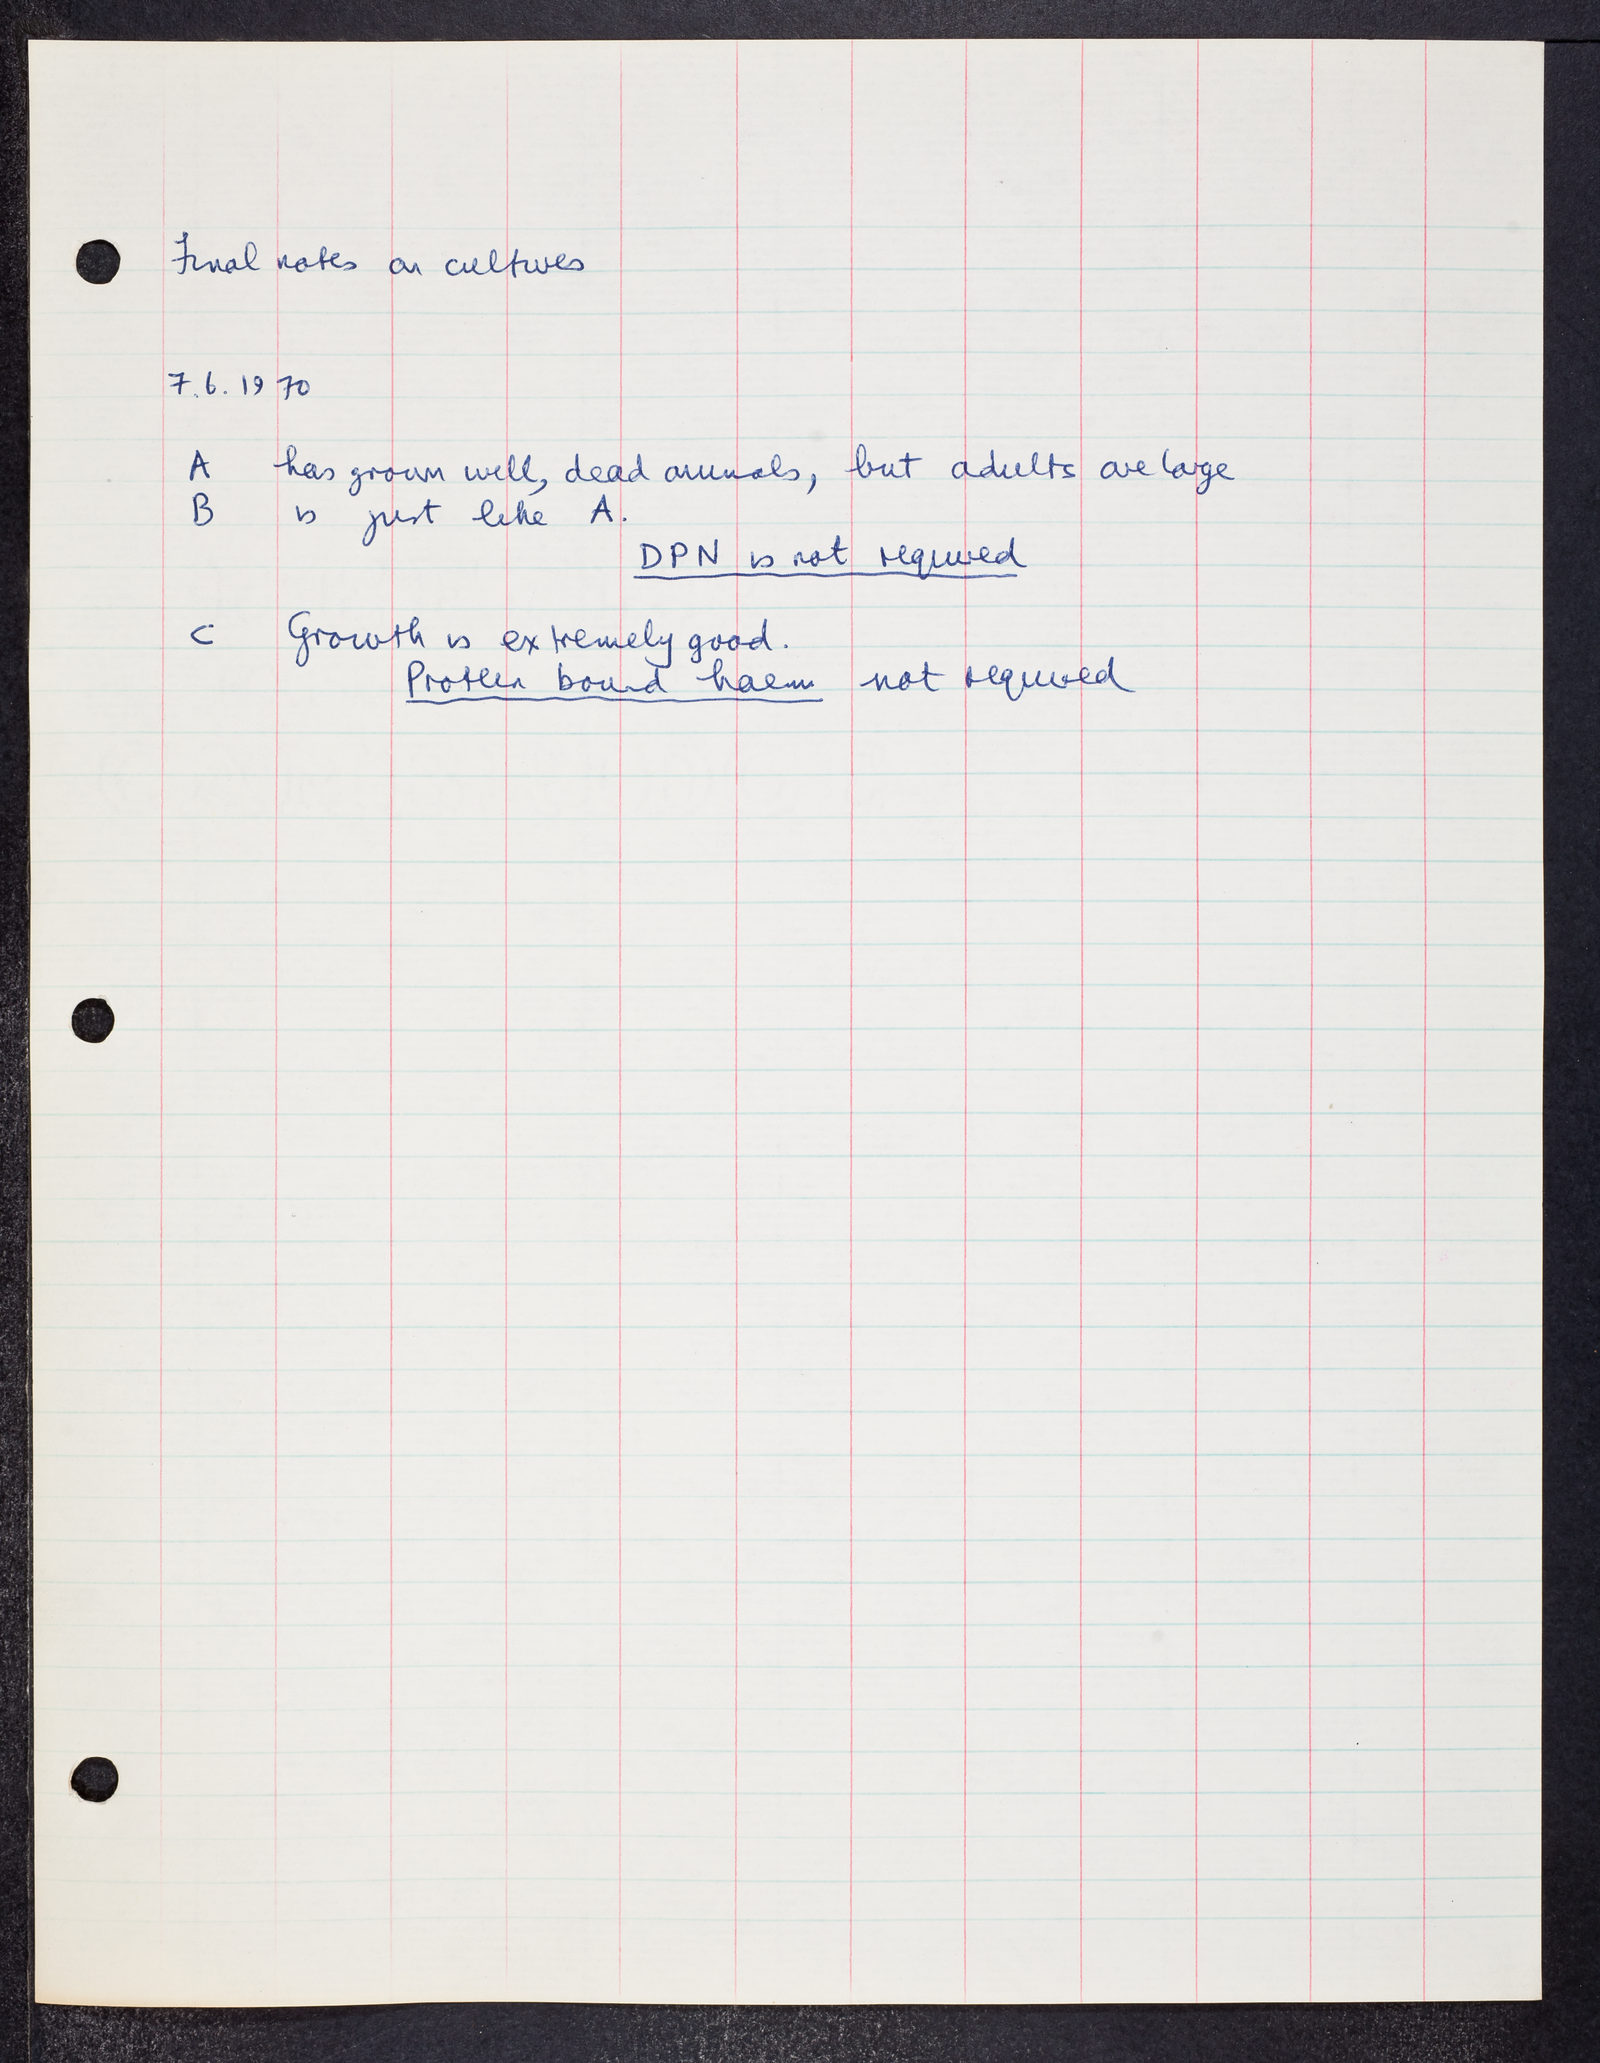 Final notes on cultures
7.6.1970
A has grown well, dead animals, but adults are large
B is just like A.
DPN is not required
C Growth is extremely good.
Protein bound haem not required